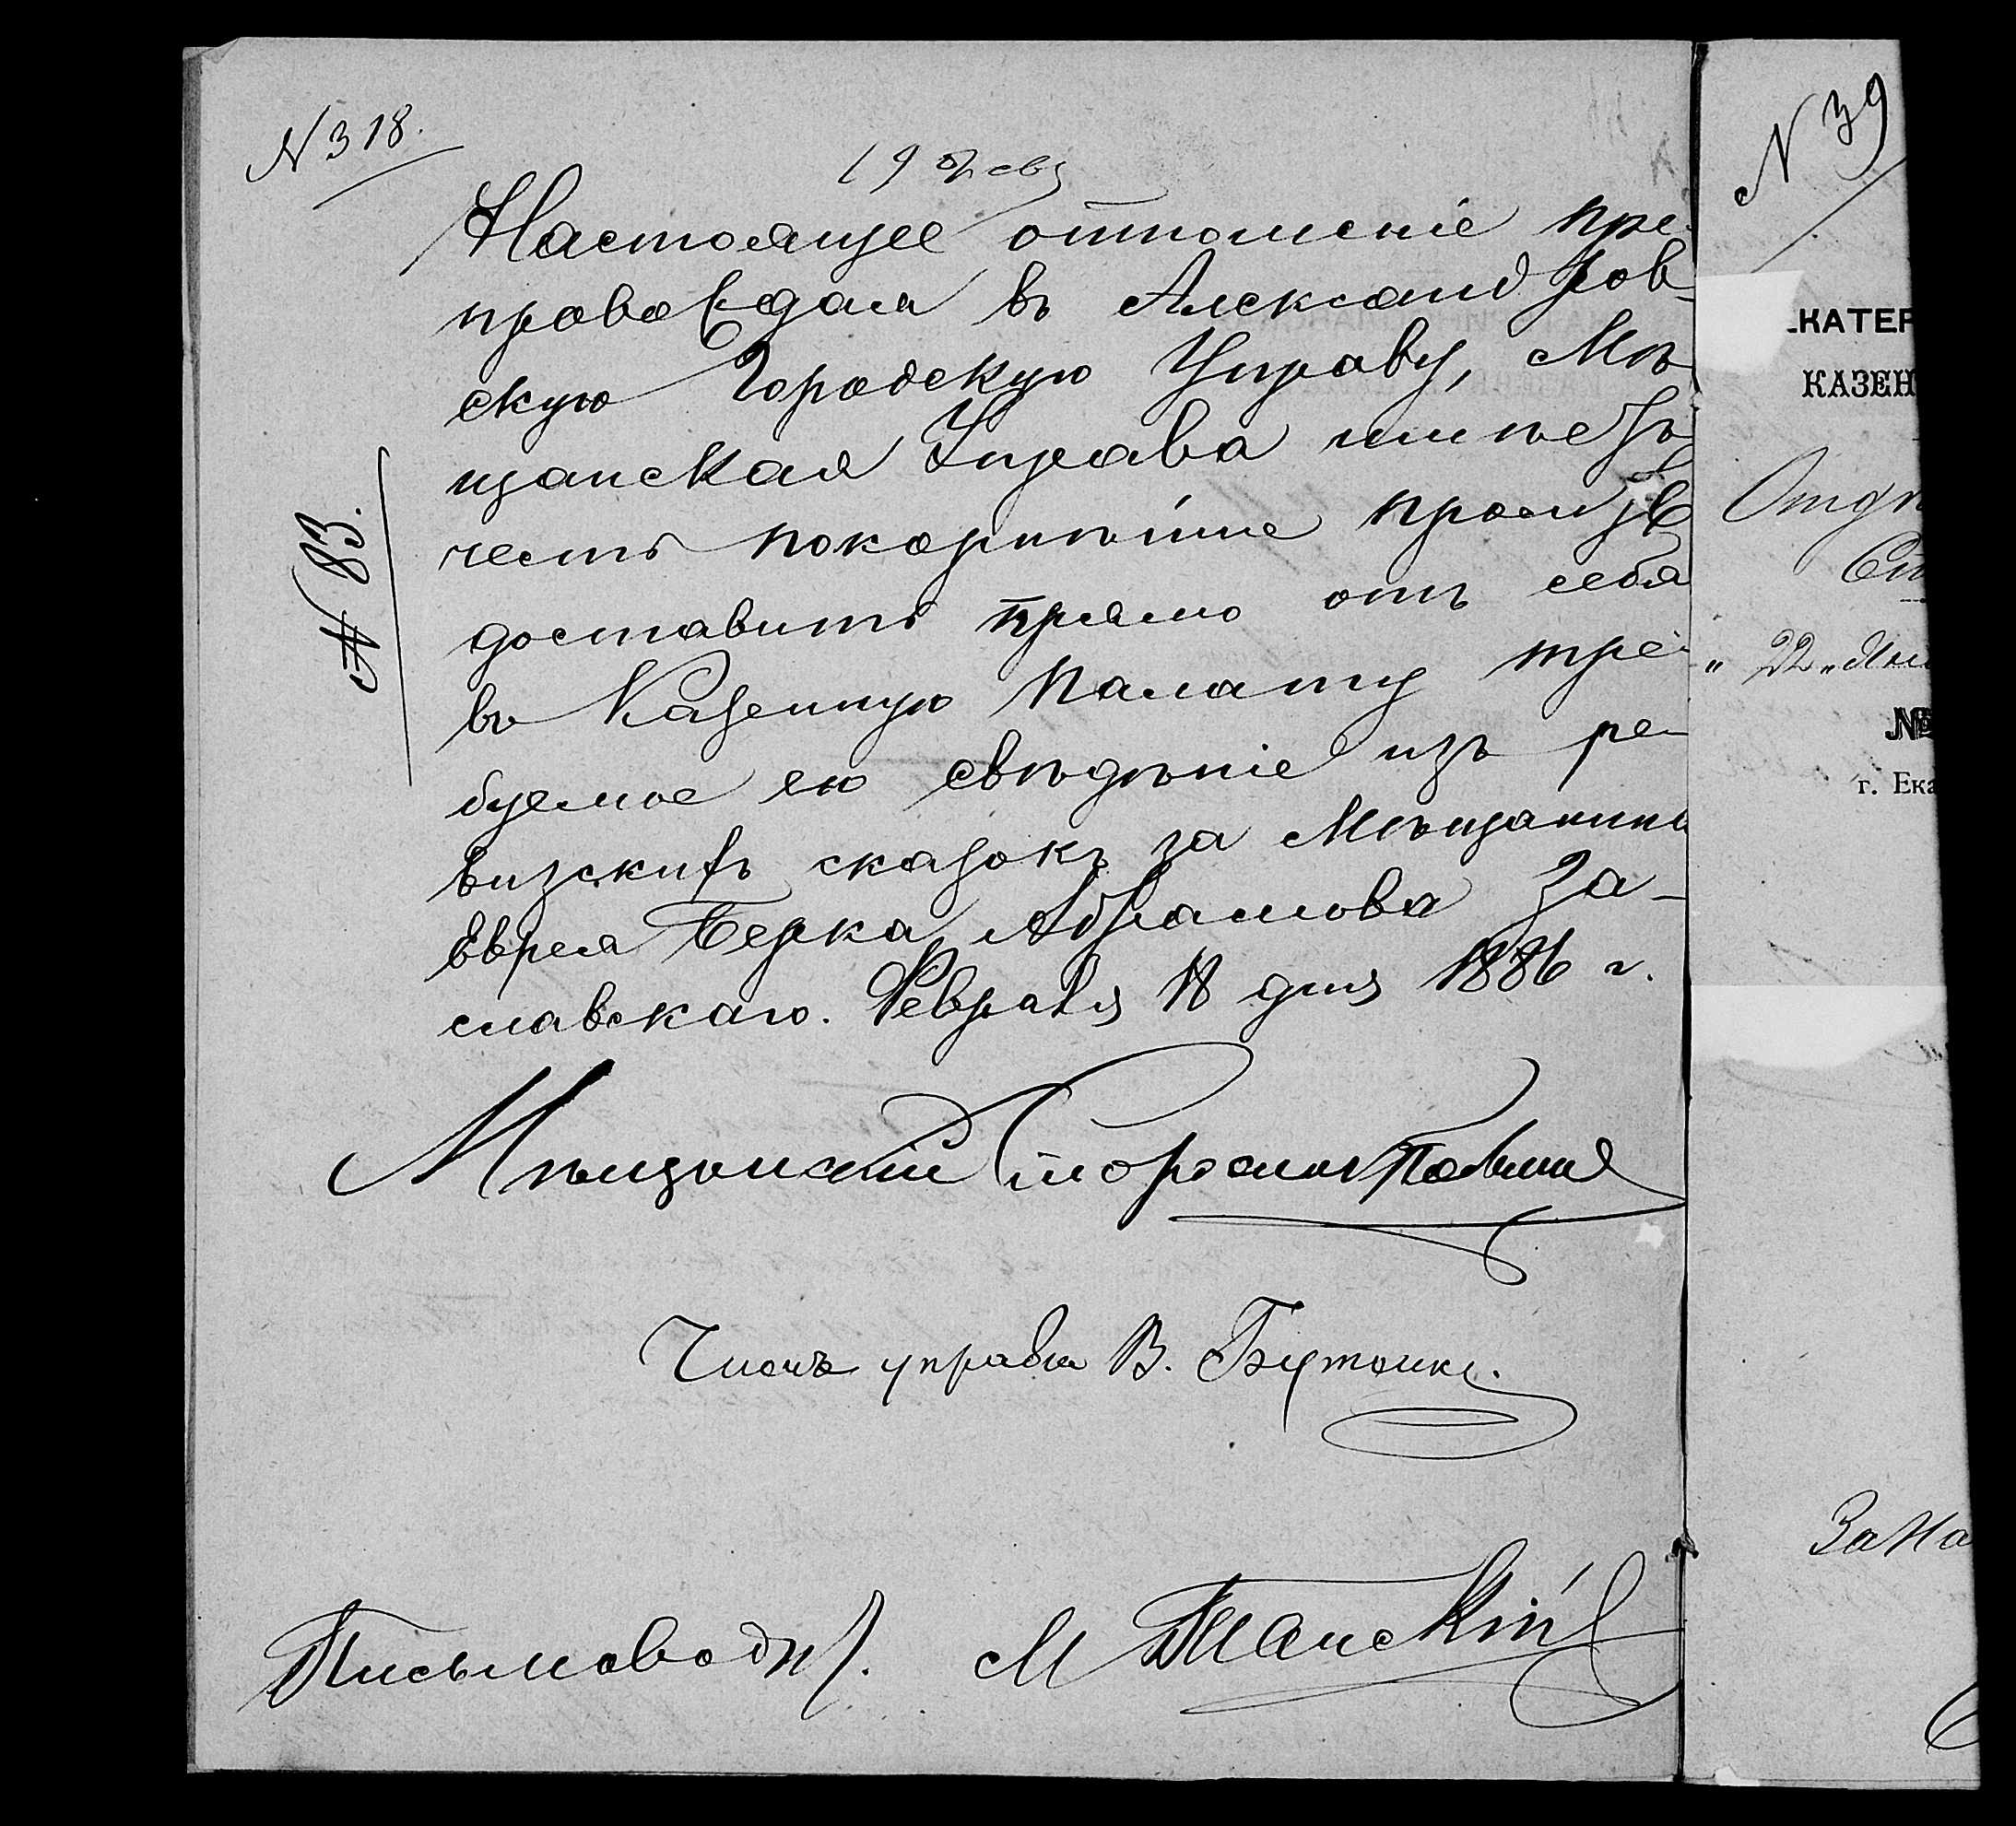 N 318.
19 Февр
Настоящее отношеніе пре-
провождая въ Александров-
скую Городскую Управу, Мѣ-
щанская Управа имѣетъ
честь покорнѣйше просить
доставить прямо отъ себя
въ Казенную Палату тре-
буемое ею свѣдѣніе изъ ре-
визскихъ сказокъ за Мѣщанина
Еврея Берка Абрамова За-
славскаго. Февраля 18 дня 1886 г.
Мѣщанскій Староста
Членъ управы В. Бутенко.
Письмоводит.
№ 83.
N 39
КАТЕР
КАЗЕН
Отдѣ
Ст
„ 22 „ Янв
№
г. Ека
За На